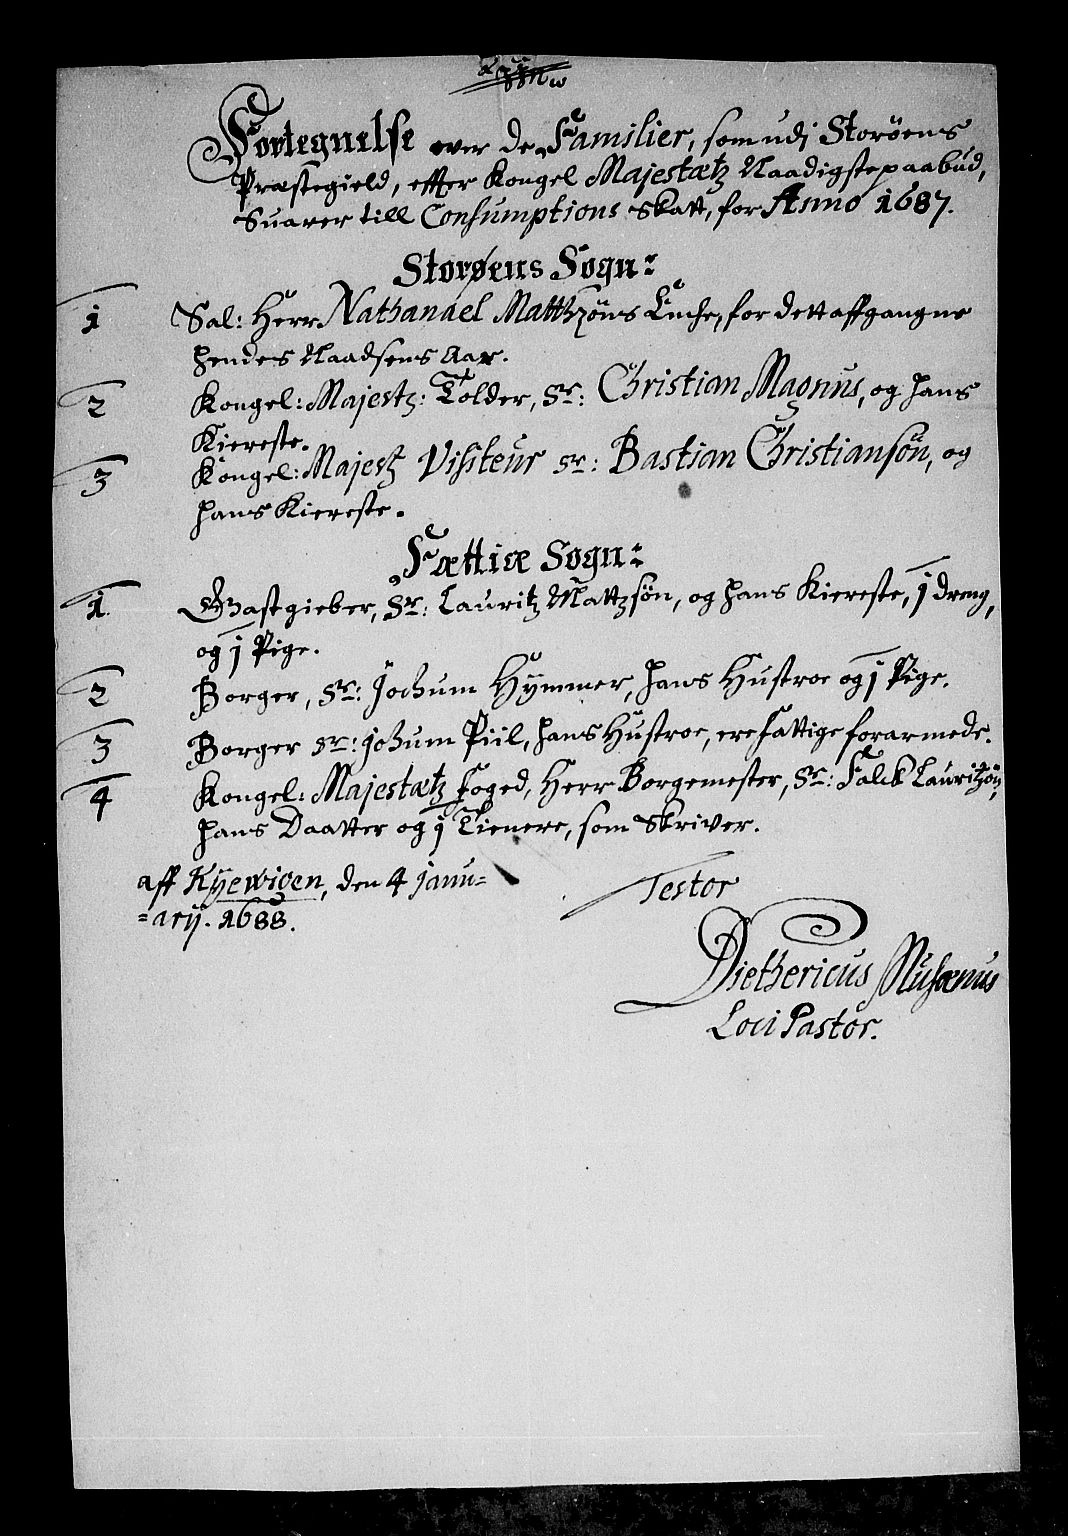 Fortegnelse over de Familier, som udj Storøens
Præstegield, effter Kongel Majestætz Naadigste paabud,
Suarer till Consumptions Skatt, for Anno 1687.
Storøens Sogn:
1 Sal: Herr Nathanael Mattzøns Encke, for dett affgangne
hendes Naadsens Aar.
2 Kongel: Majestz: Tolder, Sr: Christian Magnus, og hans
Kiereste.
3 Kongel: Majestz Visiteur Sr: Bastian Christiansøn, og
hans Kiereste.
Fættiæ Sogn:
1. Gastgieber, Sr: Lauritz Mattzsøn, og hans Kiereste, 1 dreng,
og 1 Pige.
2 Borger, Sr: Jochum Hymmer, hans Hustroe og 1 Pige.
3 Borger Sr: Jochum Piil, hans Hustroe, ere fattige forarmede.
4 Kongel: Majestætz Foged, Herr Borgemester, Sr: Falck Lauritzøn,
hans Daatter og 1 Tienere, som Skriver.
aff Kyewigen, den 4 Janu=
=arij. 1688.
Testor
Diethericus Musæus
Loci Pastor.